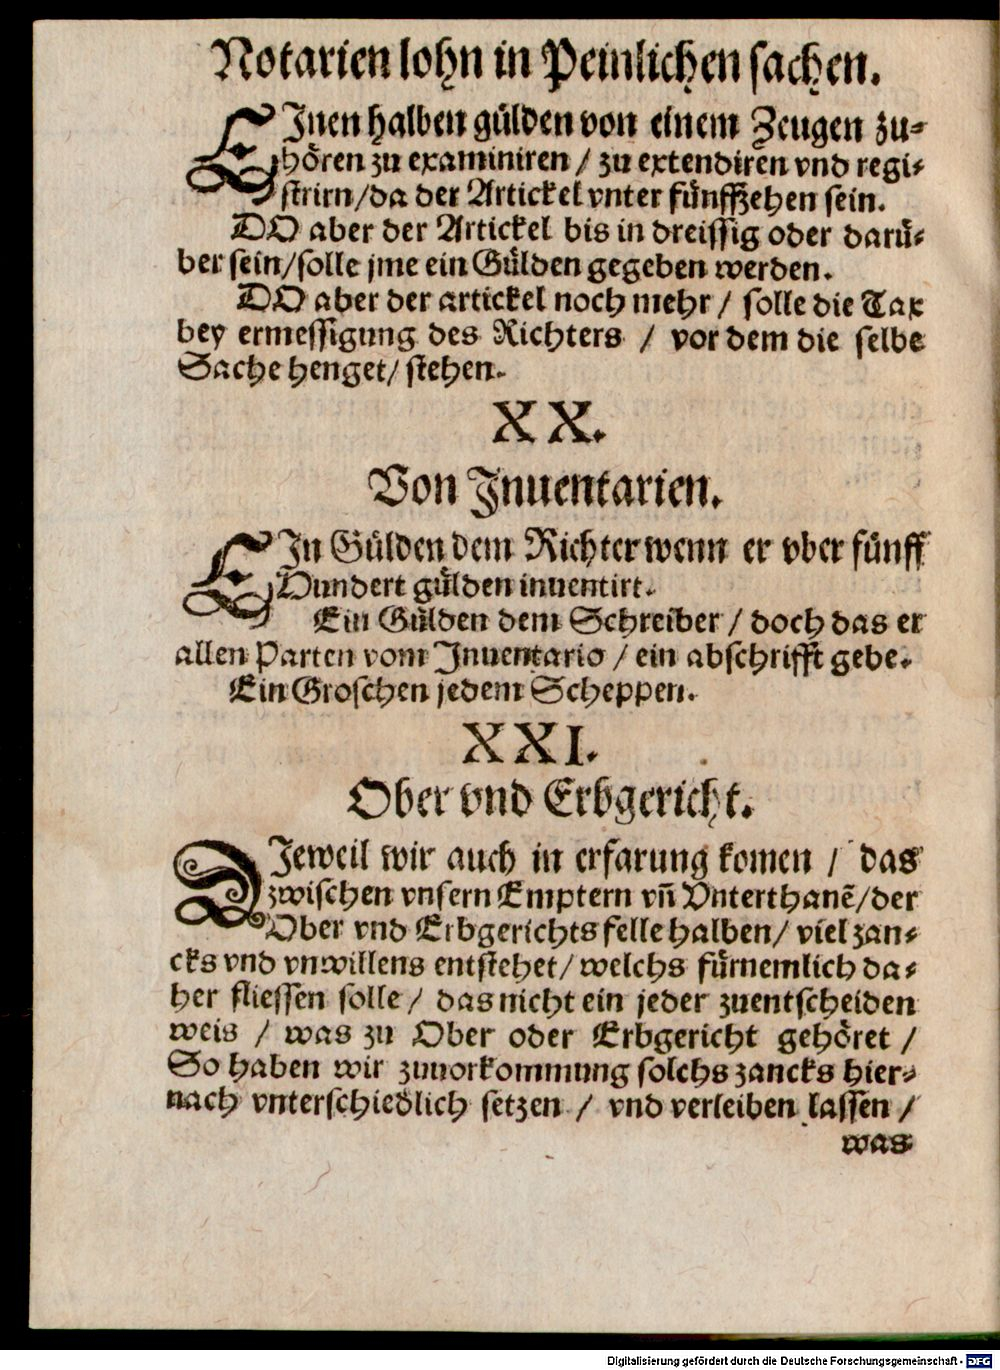 Notarien lohn in Peinlichen sachen.
EJnen halben gülden von einem Zeugen zu-
hören zu examiniren / zu extendiren vnd regi-
strirn / da der Artickel vnter fünffzehen sein.
DO aber der Artickel bis in dreissig oder darü-
ber sein / solle jme ein Gülden gegeben werden.
DO aber der artickel noch mehr / solle die Tax
bey ermessigung des Richters / vor dem die selbe
Sache henget / stehen.
XX.
Von Jnuentarien.
EJn Gülden dem Richter wenn er vber fünff
Hundert gülden inuentirt.
Ein Gülden dem Schreiber / doch das er
allen Parten vom Jnuentario / ein abschrifft gebe.
Ein Groschen jedem Scheppen.
XXI.
Ober vnd Erbgericht.
DJeweil wir auch in erfarung komen / das
zwischen vnsern Emptern vñ Vnterthanẽ / der
Ober vnd Erbgerichts felle halben / viel zan-
cks vnd vnwillens entstehet / welchs fürnemlich da-
her fliessen solle / das nicht ein jeder zuentscheiden
weis / was zu Ober oder Erbgericht gehöret /
So haben wir zuuorkommung solchs zancks hier-
nach vnterschiedlich setzen / vnd verleiben lassen /
was
Digitalisierung gefördert durch die Deutsche Forschungsgemeinschaft - DFG